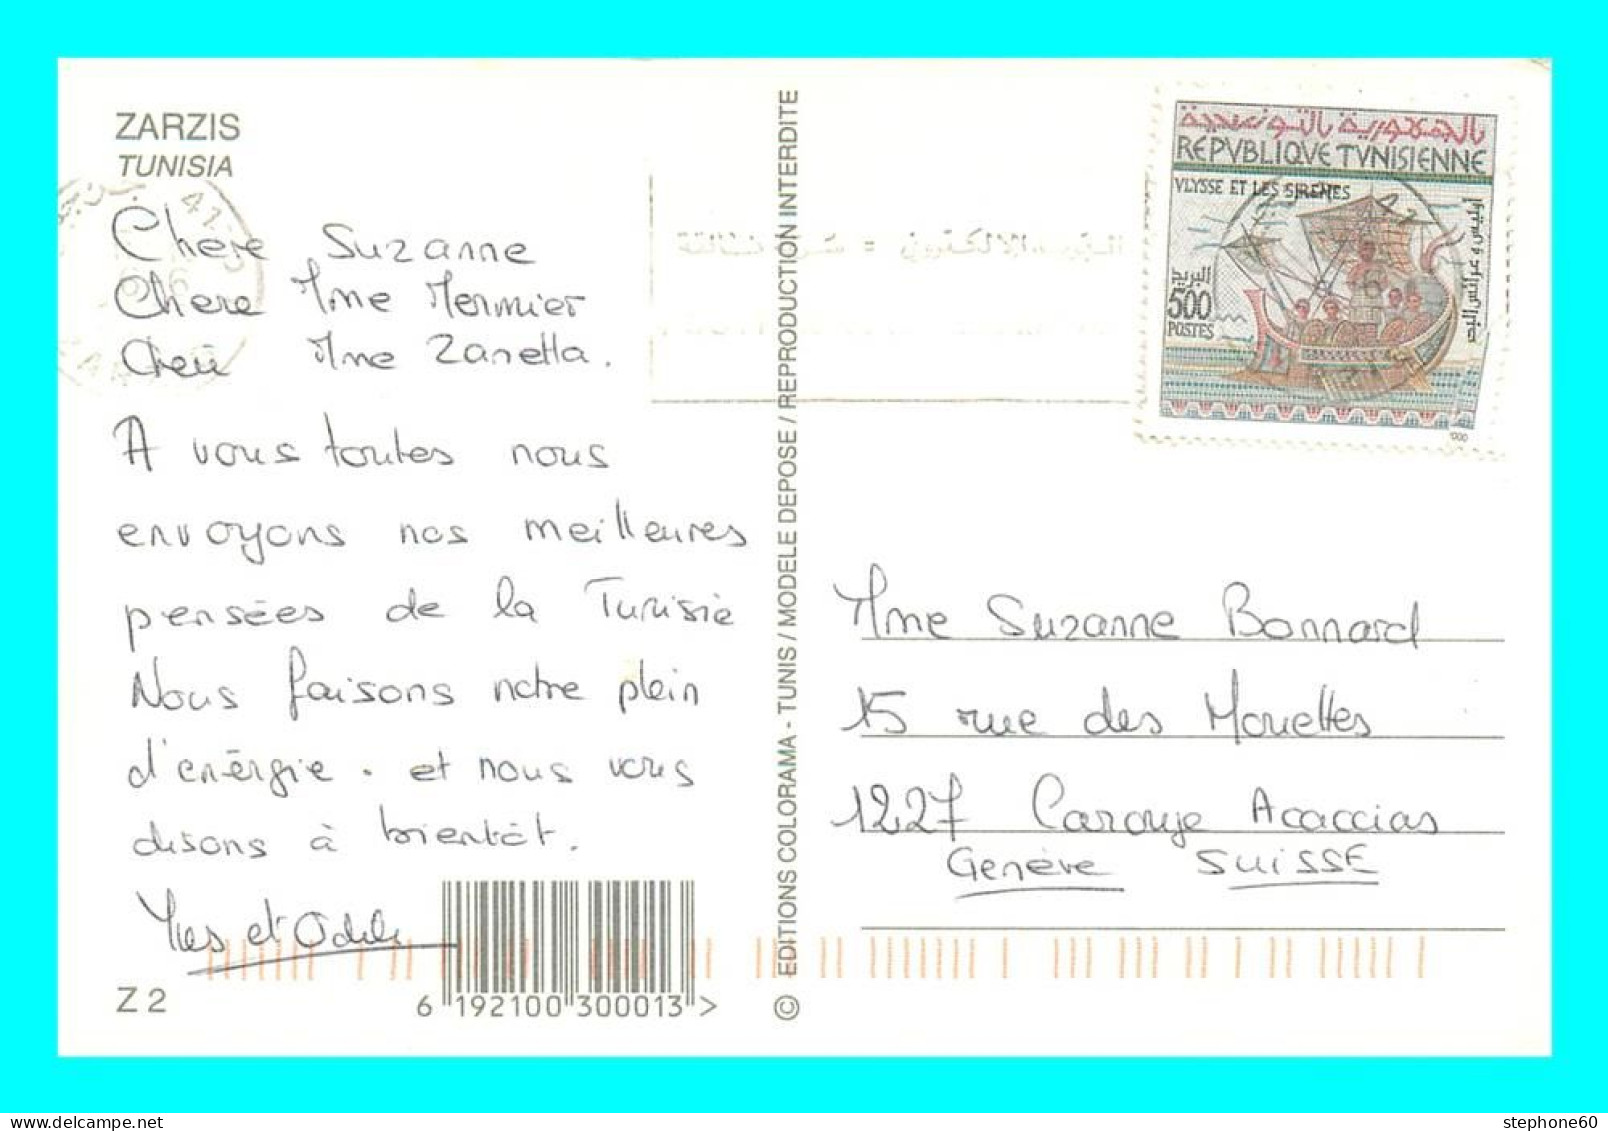 ZARZIS
TUNISIA
Chere Suzanne
Chere Mme Mermier
Mme Zanetta.
A vous toutes nous
envoyons nos meilleures
pensées de la Tunisie
Nous faisons notre plein
d'énergie. et nous vous
disons à bientôt.
Yves et Odile
Z 2
6 192100 300013 >
© EDITIONS COLORAMA - TUNIS / MODELE DEPOSE / REPRODUCTION INTERDITE
الجمهورية التونسية
REPVBLIQVE TVNISIENNE
VLYSSE ET LES SIRENES
البريد
500
POSTES
Mme Suzanne Bonnard
15 rue des Mouettes
1227 Carouge Acaccias
Genève SUISSE
stephone60